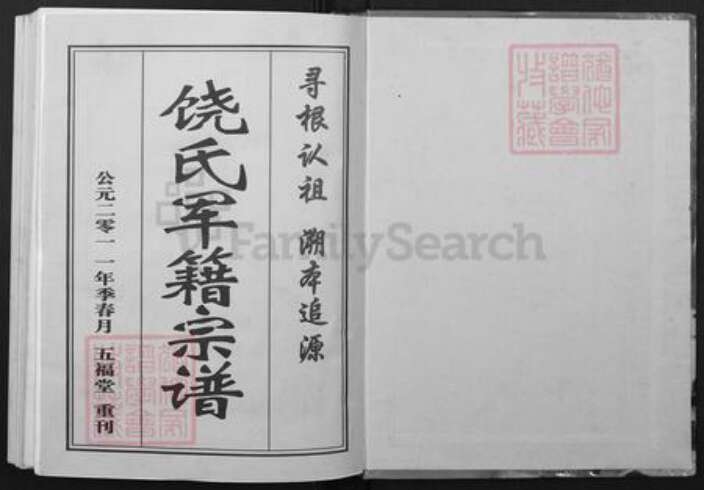 寻根认祖 溯本追源
饶氏军籍宗谱
公元二零一一年季春月 五福堂 重刊
FamilySearch